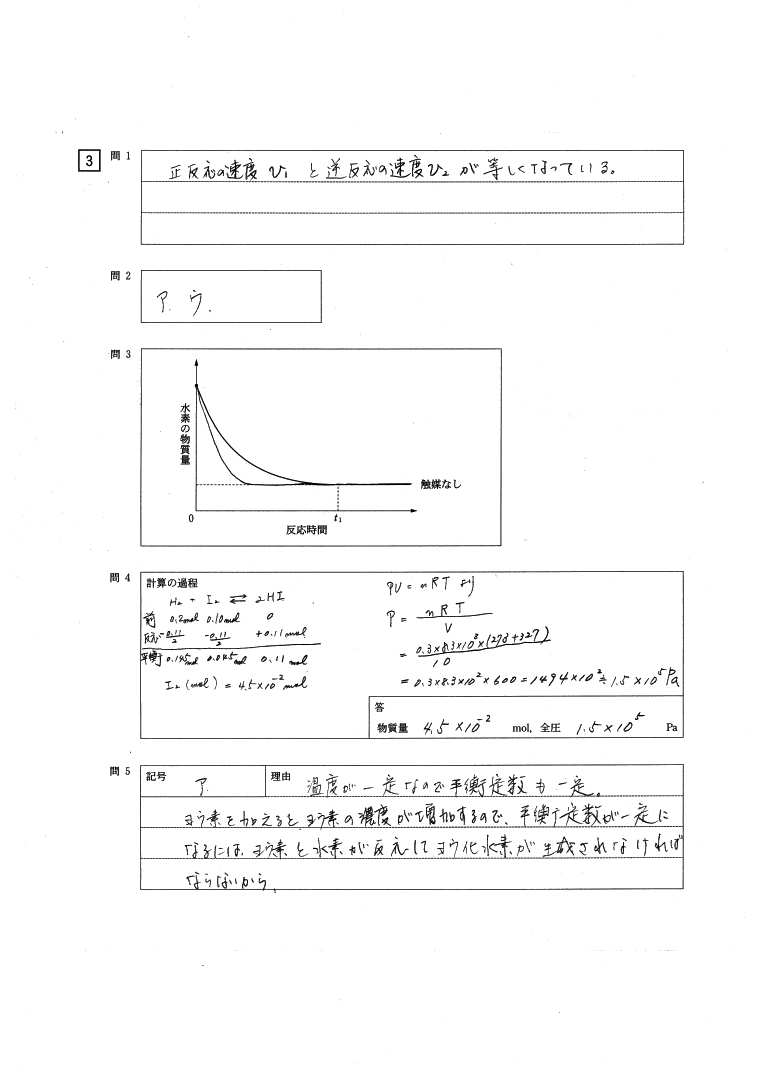 3
問 1
正反応の速度 v₁ と逆反応の速度 v₂ が等しくなっている。
問 2
ア. ウ.
問 3
水素の物質量
触媒なし
0
t₁
反応時間
問 4
計算の過程
H₂ + I₂ ⇄ 2HI
前 0.2mol 0.10mol 0
反応 -0.11/2 -0.11/2 +0.11mol
平衡 0.145mol 0.045mol 0.11mol
I₂(mol) = 4.5×10⁻² mol
PV = nRT より
P = nRT/V
= 0.3×8.3×10³×(273+327)/10
= 0.3×8.3×10²×600 = 1494×10² ≒ 1.5×10⁵ Pa
答
物質量 4.5×10⁻² mol, 全圧 1.5×10⁵ Pa
問 5
記号 ア.
理由 温度が一定なので平衡定数も一定。
ヨウ素を加えるとヨウ素の濃度が増加するので、平衡定数が一定に
なるには、ヨウ素と水素が反応してヨウ化水素が生成されなければ
ならないから。